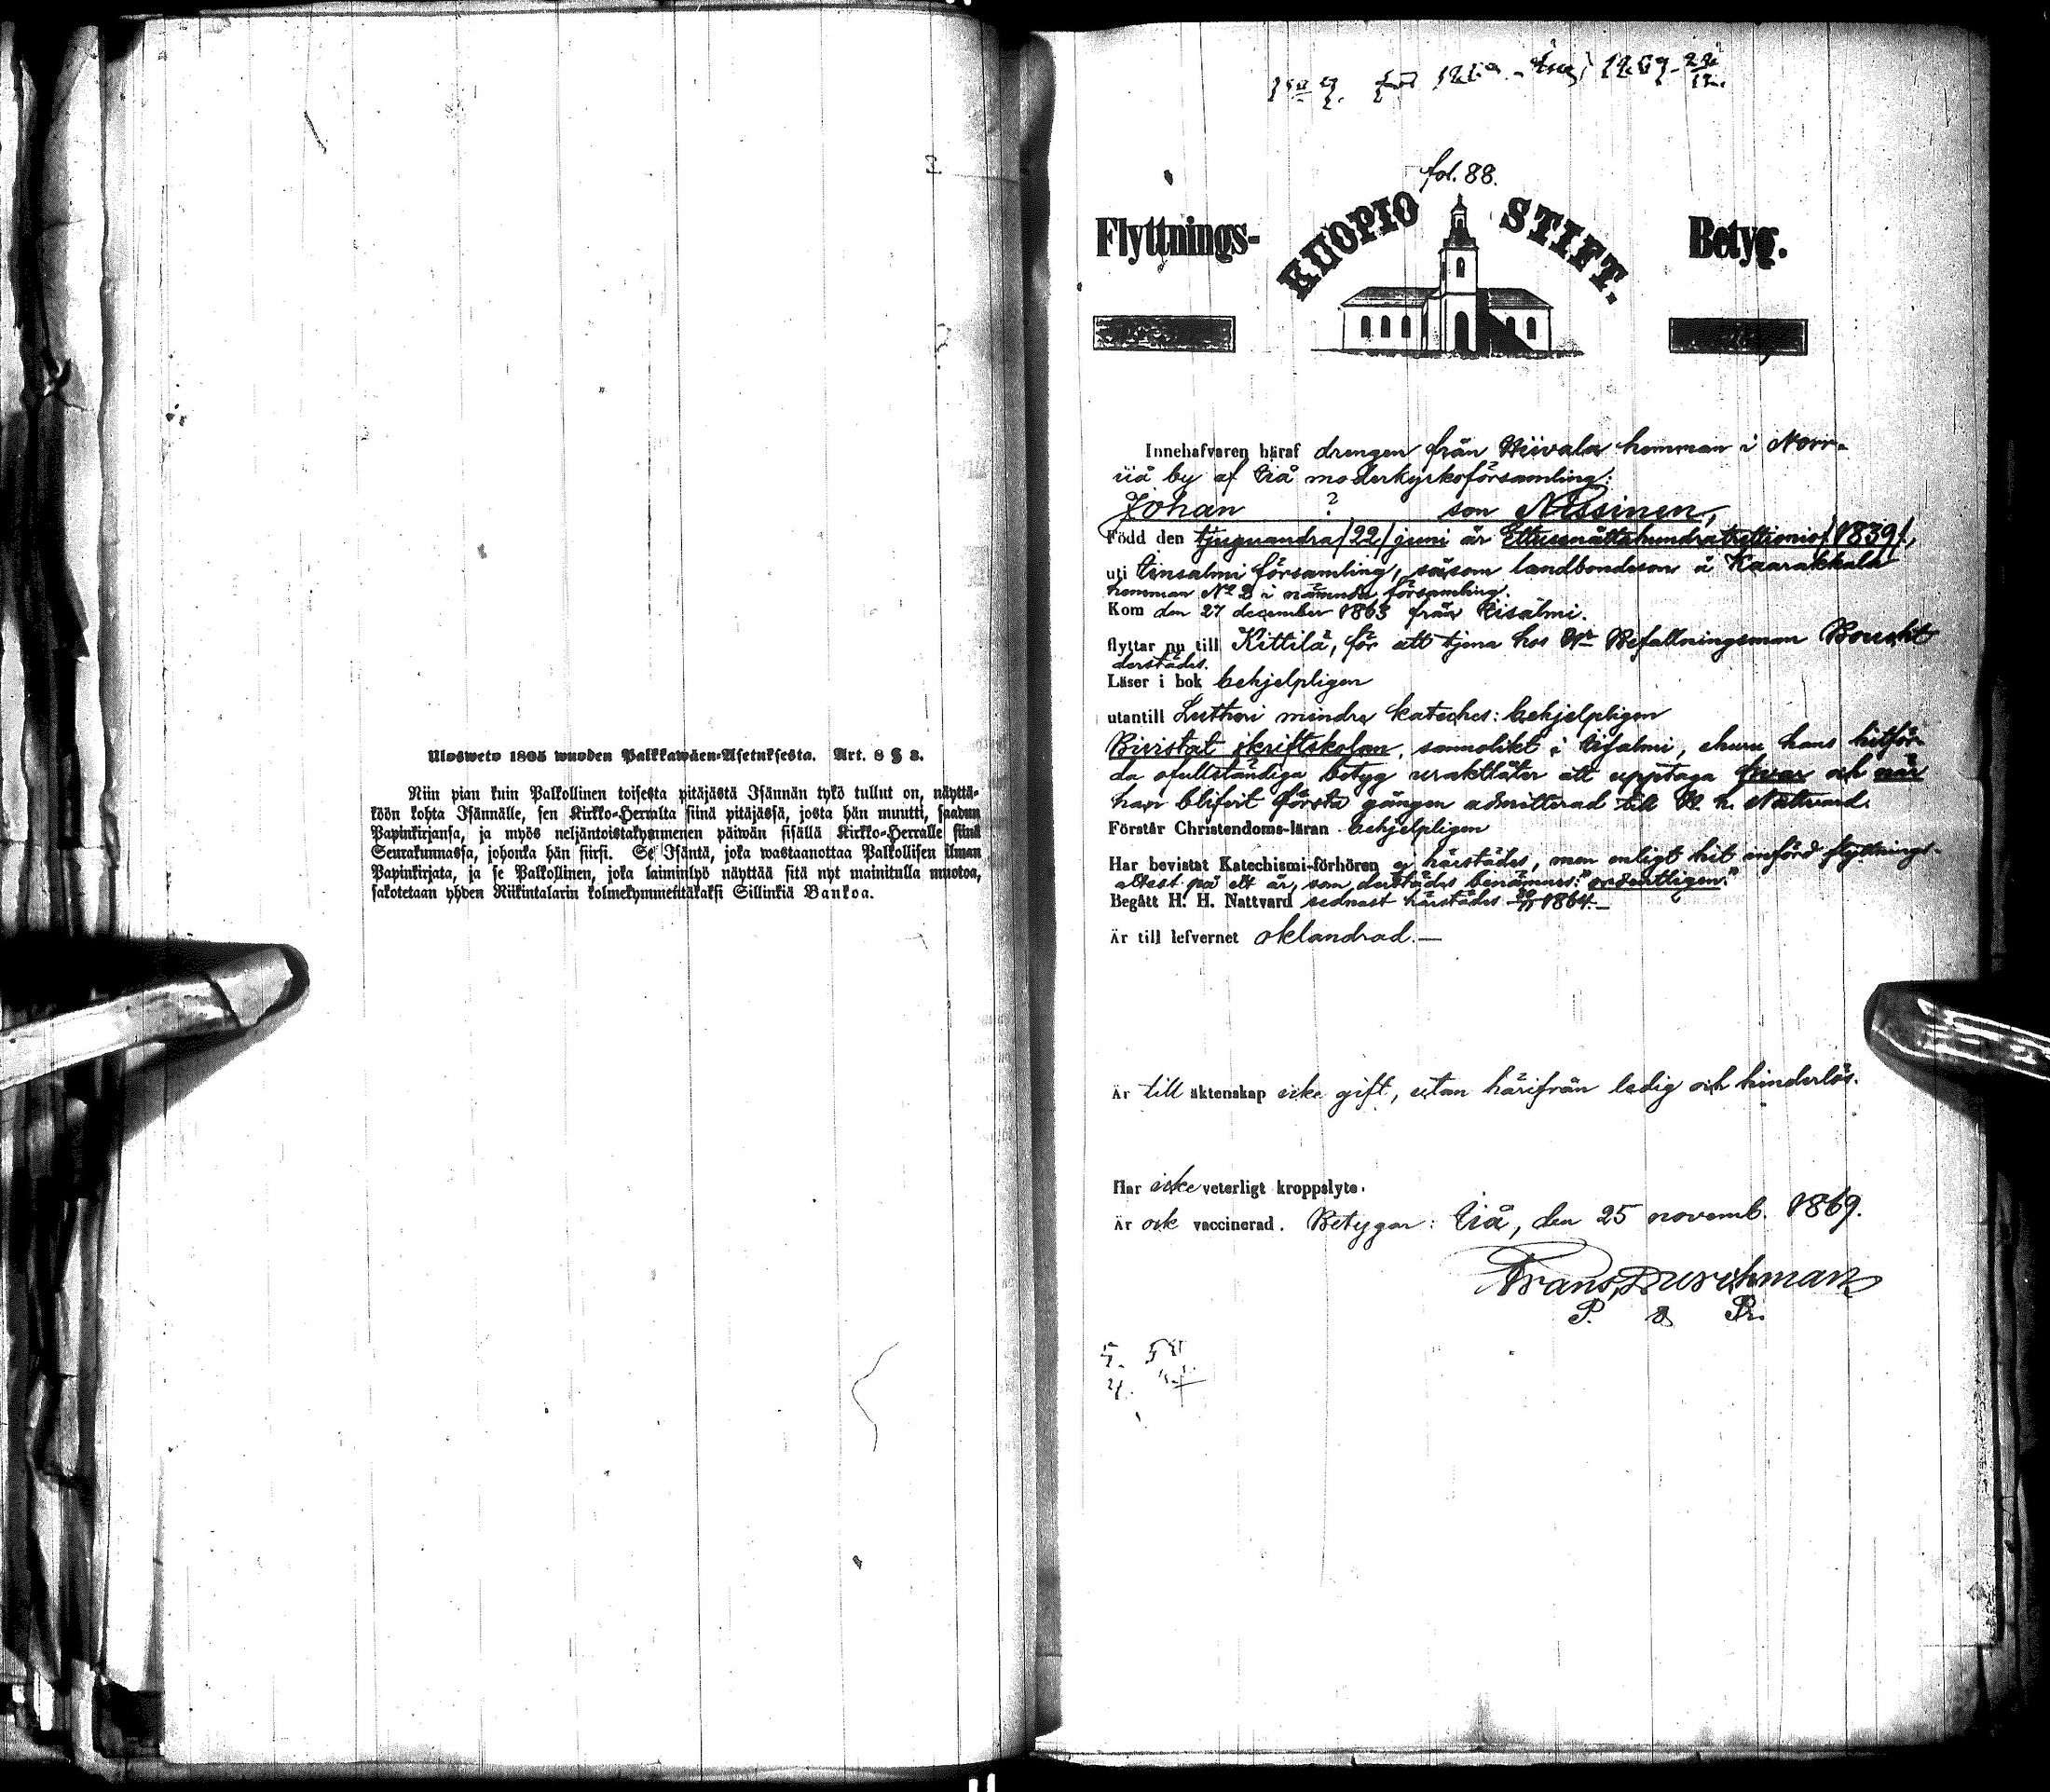 Ulosweto 1805 wuoden Palkkawäen-Asetuksesta. Art. 8 § 3.
Niin pian kuin Palkollinen toisesta pitäjästä Isännän tykö tullut on, näyttä-
köön kohta Isännälle, sen Kirkko-Herralta siinä pitäjässä, josta hän muutti, saadun
Papinkirjansa, ja myös neljäntoistakymmenen päiwän sisällä Kirkko-Herralle siinä
Seurakunnassa, johonka hän siirsi. Se Isäntä, joka wastaanottaa Palkollisen ilman
Papinkirjata, ja se Palkollinen, joka laiminlyö näyttää sitä nyt mainitulla muotoa,
sakotetaan yhden Riikintalarin kolmekymmentäkaksi Sillinkiä Bankoa.
fol. 88.
Flyttnings- KUOPIO STIFT. Betyg.
Innehafvaren häraf drengen från hemman i Norr-
iiå by af Iiå moderkyrkoförsamling:
Johan ? son Nissinen,
Född den tjuguandra /22/ juni år Ettusenåttahundratrettionio /1839/,
uti församling, såsom landbondeson å Kaarakkala
hemman No 2 i nämnda församling.
Kom den 27 december 1863 från
flyttar nu till Kittilä, för att tjena hos Befallningsman
derstädes.
Läser i bok behjelpligen
utantill Lutheri mindre kateches: behjelpligen
Bivistat skriftskolan, sannolikt i ehuru hans hitför-
da ofullständiga betyg uraktlåter att upptaga hvar och när
han blifvit första gången admitterad till H. h. Nattvard.
Förstår Christendoms-läran behjelpligen
Har bevistat Katechismi-förhören ej härstädes, men enligt hit införd flyttnings-
attest på ett år, som derstädes benämnes: "ordentligen."
Begått H. H. Nattvard sednast härstädes 1864.—
Är till lefvernet oklandrad.—
Är till äktenskap icke gift, utan härifrån ledig och hinderlös.
Har icke veterligt kroppslyte.
Är ock vaccinerad. Betygar: Iiå, den 25 novemb. 1869.
Frans Durchman
P. &